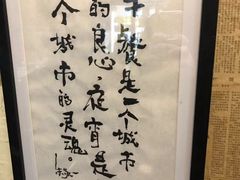 早餐是一个城市
的良心,夜宵是
个城市的灵魂。